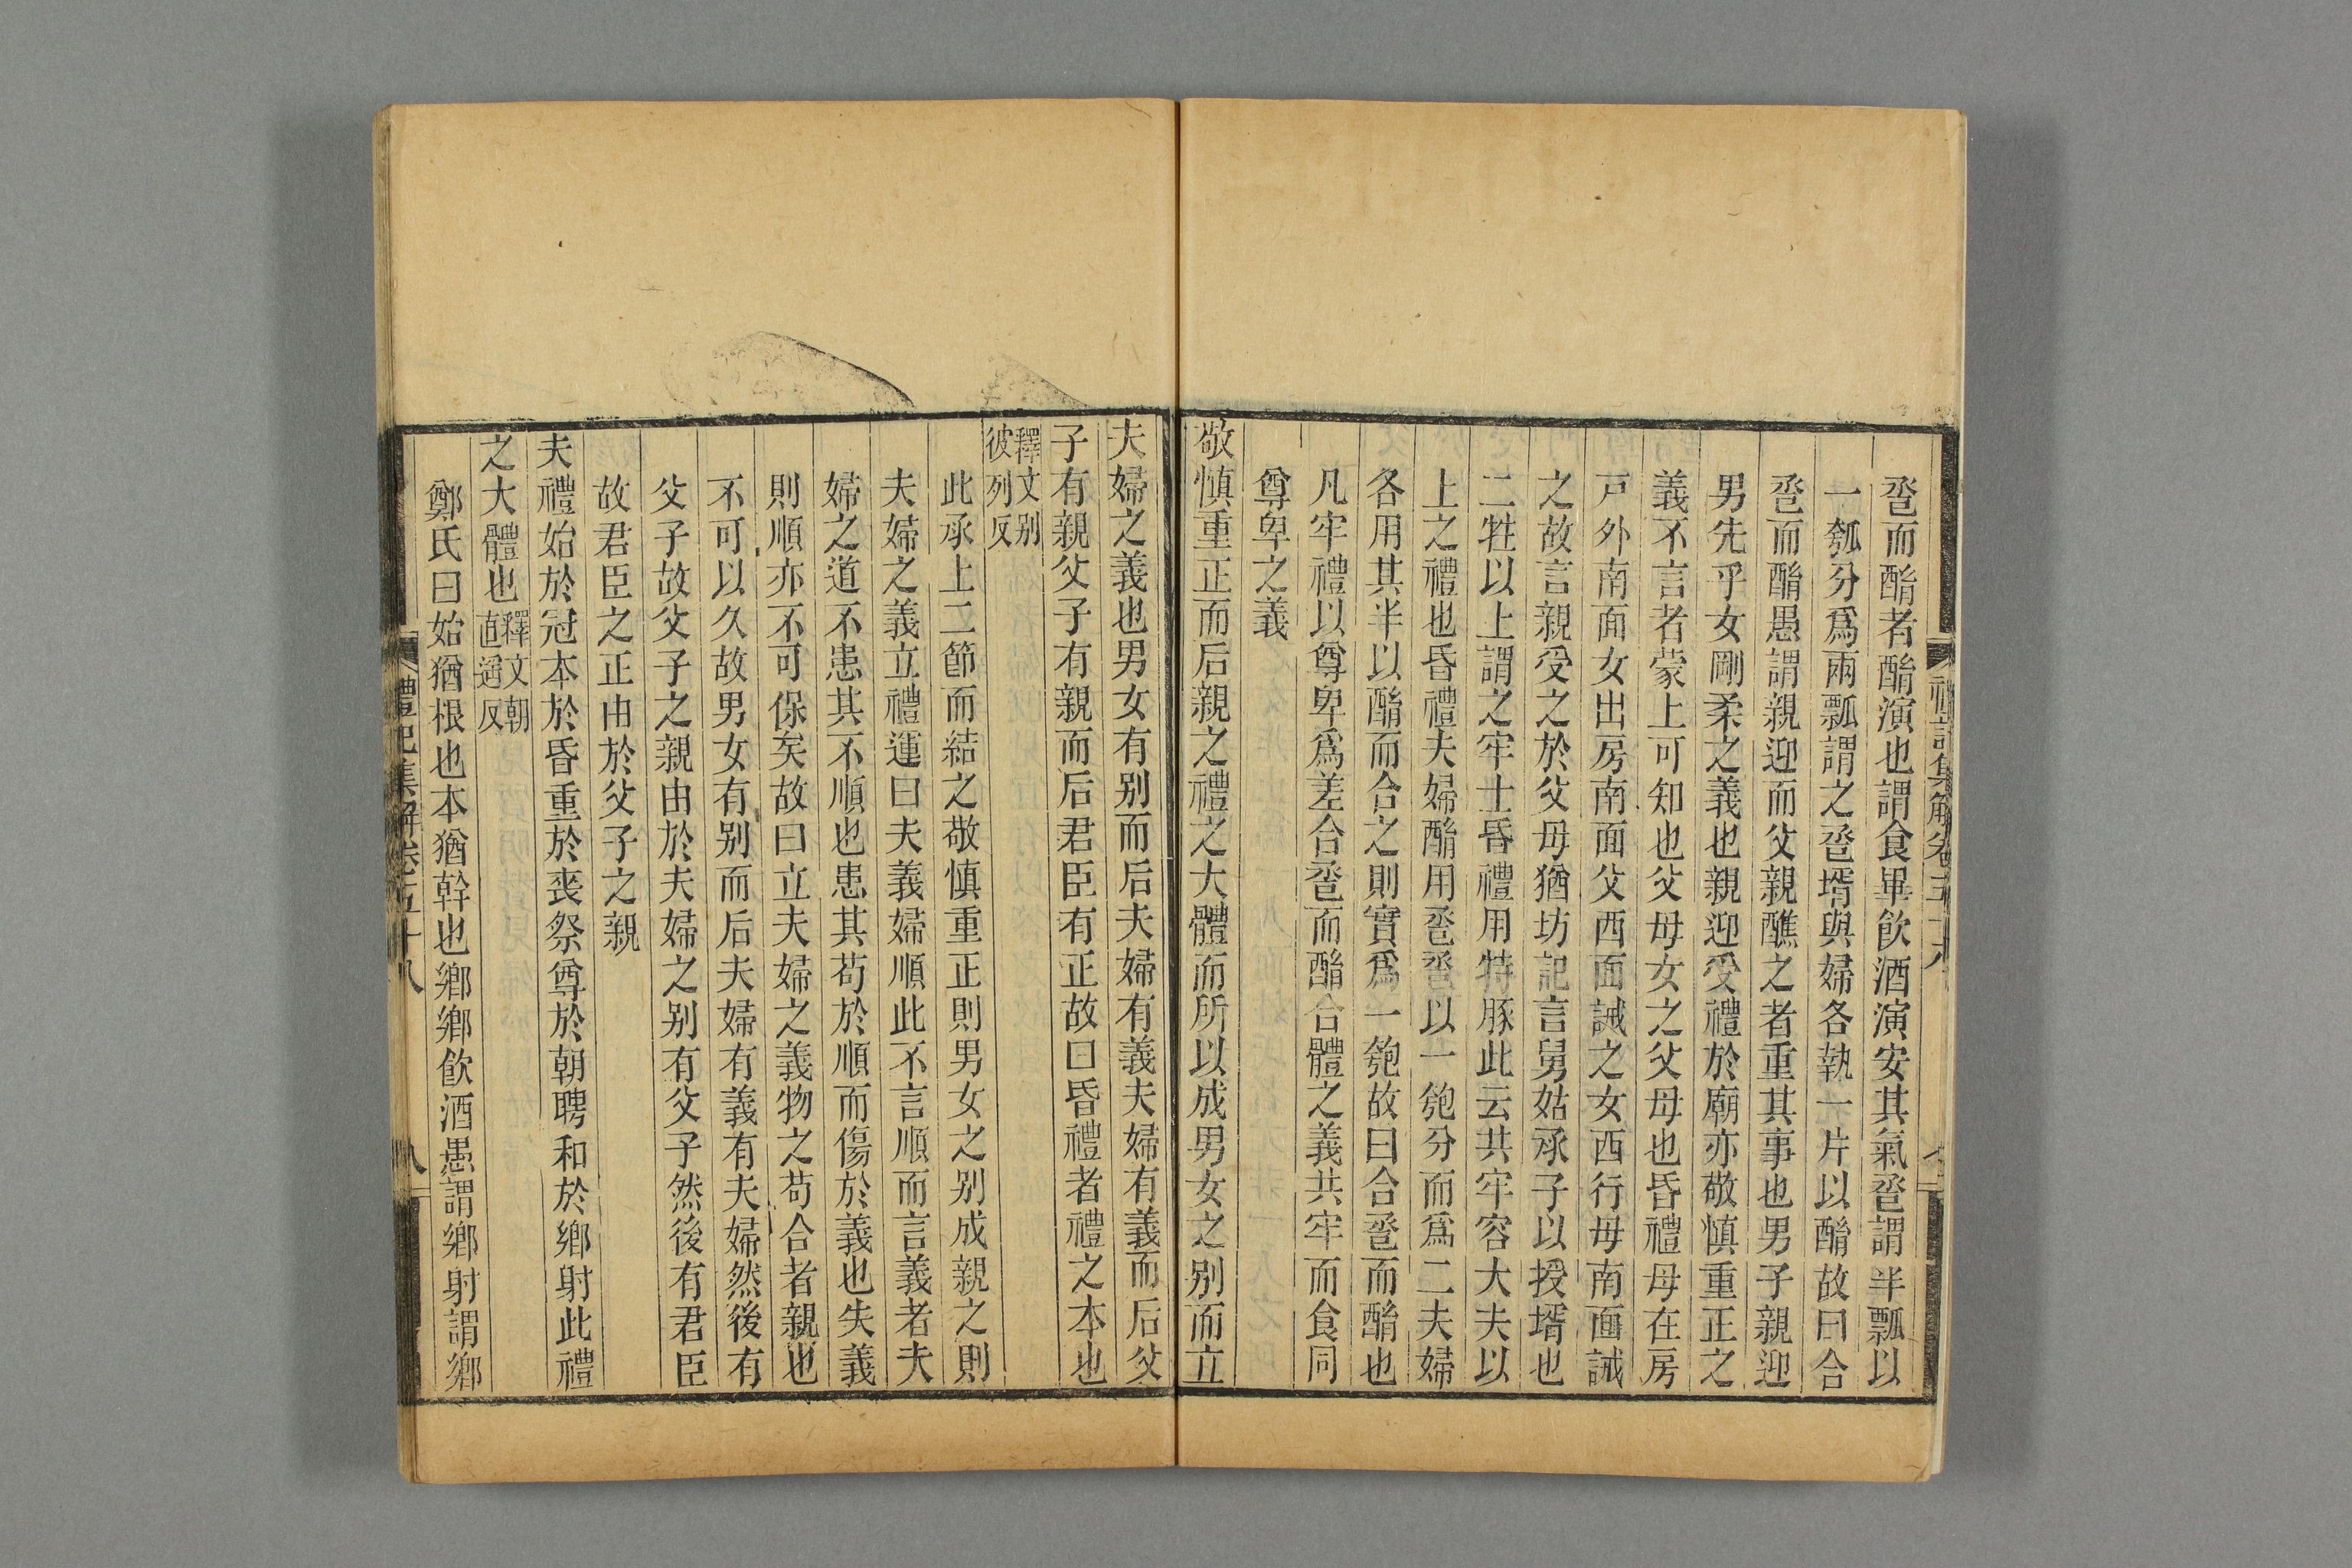 巹而酳者酳演也謂食畢飲酒演安其氣巹謂半瓢以
一瓠分爲兩瓢謂之巹壻與婦各執一片以酳故曰合
巹而酳愚謂親迎而父親醮之者重其事也男子親迎
男先乎女剛柔之義也親迎受禮於廟亦敬慎重正之
義不言者蒙上可知也父母女之父母也昏禮母在房
戸外南面女出房南面父西面誡之女西行母南面誡
之故言親受之於父母猶坊記言舅姑承子以授壻也
二牲以上謂之牢士昏禮用特豚此云共牢容大夫以
上之禮也昏禮夫婦酳用巹巹以一匏分而爲二夫婦
各用其半以酳而合之則實爲一匏故曰合巹而酳也
凡牢禮以尊卑爲差合巹而酳合體之義共牢而食同
尊卑之義
敬慎重正而后親之禮之大體而所以成男女之别而立
夫婦之義也男女有别而后夫婦有義夫婦有義而后父
子有親父子有親而后君臣有正故曰昏禮者禮之本也
釋文别
彼列反
此承上二節而結之敬慎重正則男女之别成親之則
夫婦之義立禮運曰夫義婦順此不言順而言義者夫
婦之道不患其不順也患其苟於順而傷於義也失義
則順亦不可保矣故曰立夫婦之義物之苟合者親也
不可以久故男女有别而后夫婦有義有夫婦然後有
父子故父子之親由於夫婦之别有父子然後有君臣
故君臣之正由於父子之親
夫禮始於冠本於昏重於喪祭尊於朝聘和於鄉射此禮
之大體也釋文朝
直遥反
鄭氏曰始猶根也本猶幹也鄉鄉飲酒愚謂鄉射謂鄉
禮記集解卷五十八
八